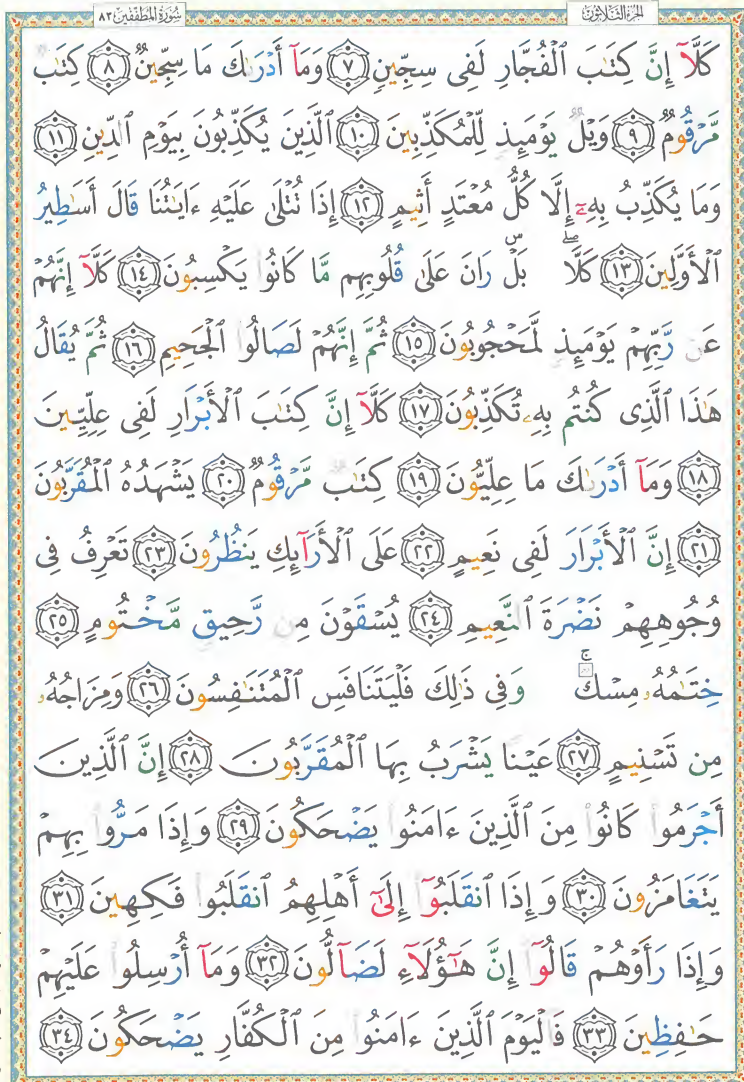 سُورَةُ المُطَفِّفِين ٨٣
الجزء الثلاثون
كَلَّآ إِنَّ كِتَٰبَ ٱلْفُجَّارِ لَفِى سِجِّينٍ ٧ وَمَآ أَدْرَىٰكَ مَا سِجِّينٌ ٨ كِتَٰبٌ
مَّرْقُومٌ ٩ وَيْلٌ يَوْمَئِذٍ لِّلْمُكَذِّبِينَ ١٠ ٱلَّذِينَ يُكَذِّبُونَ بِيَوْمِ ٱلدِّينِ ١١
وَمَا يُكَذِّبُ بِهِۦٓ إِلَّا كُلُّ مُعْتَدٍ أَثِيمٍ ١٢ إِذَا تُتْلَىٰ عَلَيْهِ ءَايَٰتُنَا قَالَ أَسَٰطِيرُ
ٱلْأَوَّلِينَ ١٣ كَلَّاۖ بَلْۜ رَانَ عَلَىٰ قُلُوبِهِم مَّا كَانُوا۟ يَكْسِبُونَ ١٤ كَلَّآ إِنَّهُمْ
عَن رَّبِّهِمْ يَوْمَئِذٍ لَّمَحْجُوبُونَ ١٥ ثُمَّ إِنَّهُمْ لَصَالُوا۟ ٱلْجَحِيمِ ١٦ ثُمَّ يُقَالُ
هَٰذَا ٱلَّذِى كُنتُم بِهِۦ تُكَذِّبُونَ ١٧ كَلَّآ إِنَّ كِتَٰبَ ٱلْأَبْرَارِ لَفِى عِلِّيِّينَ
١٨ وَمَآ أَدْرَىٰكَ مَا عِلِّيُّونَ ١٩ كِتَٰبٌ مَّرْقُومٌ ٢٠ يَشْهَدُهُ ٱلْمُقَرَّبُونَ
٢١ إِنَّ ٱلْأَبْرَارَ لَفِى نَعِيمٍ ٢٢ عَلَى ٱلْأَرَآئِكِ يَنظُرُونَ ٢٣ تَعْرِفُ فِى
وُجُوهِهِمْ نَضْرَةَ ٱلنَّعِيمِ ٢٤ يُسْقَوْنَ مِن رَّحِيقٍ مَّخْتُومٍ ٢٥
خِتَٰمُهُۥ مِسْكٌۚ وَفِى ذَٰلِكَ فَلْيَتَنَافَسِ ٱلْمُتَنَٰفِسُونَ ٢٦ وَمِزَاجُهُۥ
مِن تَسْنِيمٍ ٢٧ عَيْنًا يَشْرَبُ بِهَا ٱلْمُقَرَّبُونَ ٢٨ إِنَّ ٱلَّذِينَ
أَجْرَمُوا۟ كَانُوا۟ مِنَ ٱلَّذِينَ ءَامَنُوا۟ يَضْحَكُونَ ٢٩ وَإِذَا مَرُّوا۟ بِهِمْ
يَتَغَامَزُونَ ٣٠ وَإِذَا ٱنقَلَبُوٓا۟ إِلَىٰٓ أَهْلِهِمُ ٱنقَلَبُوا۟ فَكِهِينَ ٣١
وَإِذَا رَأَوْهُمْ قَالُوٓا۟ إِنَّ هَٰٓؤُلَآءِ لَضَآلُّونَ ٣٢ وَمَآ أُرْسِلُوا۟ عَلَيْهِمْ
حَٰفِظِينَ ٣٣ فَٱلْيَوْمَ ٱلَّذِينَ ءَامَنُوا۟ مِنَ ٱلْكُفَّارِ يَضْحَكُونَ ٣٤